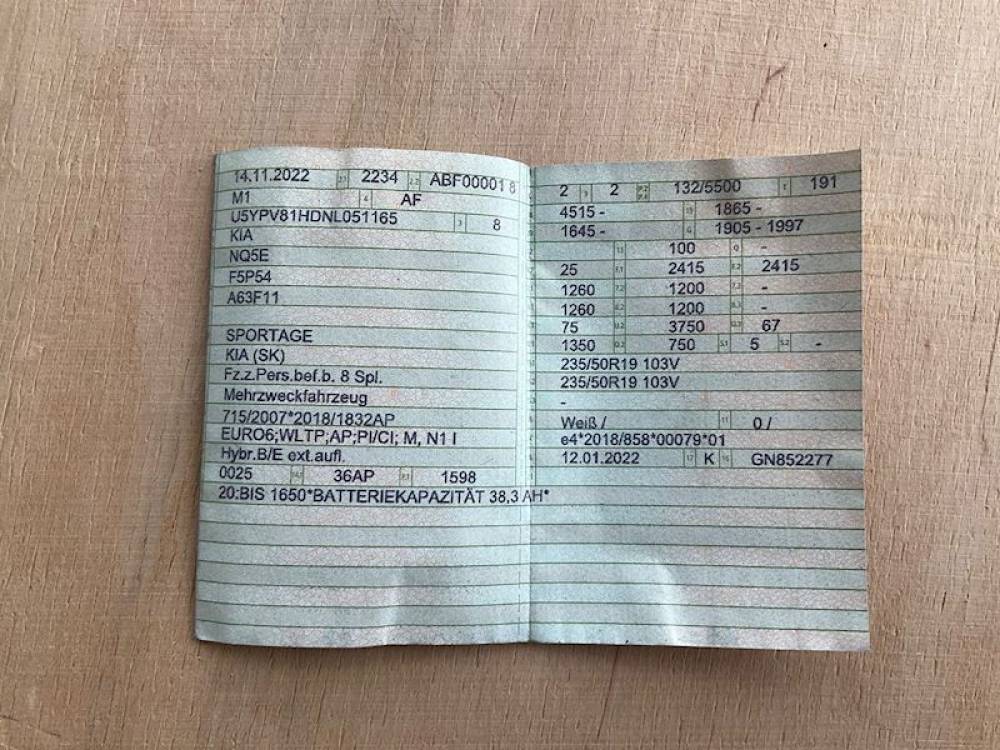 14.11.2022 2.1 2234 2.2 ABF00001 8
M1 4 AF
U5YPV81HDNL051165 3 8
KIA
NQ5E
F5P54
A63F11
SPORTAGE
KIA (SK)
Fz.z.Pers.bef.b. 8 Spl.
Mehrzweckfahrzeug
715/2007*2018/1832AP
EURO6;WLTP;AP;PI/CI; M, N1 I
Hybr.B/E ext.aufl.
0025 14.1 36AP P.1 1598
20:BIS 1650*BATTERIEKAPAZITÄT 38,3 AH*
2 9 2 P.2 P.4 132/5500 T 191
4515 - 19 1865 -
1645 - G 1905 - 1997
13 100 Q -
25 F.1 2415 F.2 2415
1260 7.2 1200 7.3 -
1260 8.2 1200 8.3 -
75 U.2 3750 U.3 67
1350 O.2 750 S.1 5 S.2 -
235/50R19 103V
235/50R19 103V
-
Weiß / 11 0 /
e4*2018/858*00079*01
12.01.2022 17 K 16 GN852277